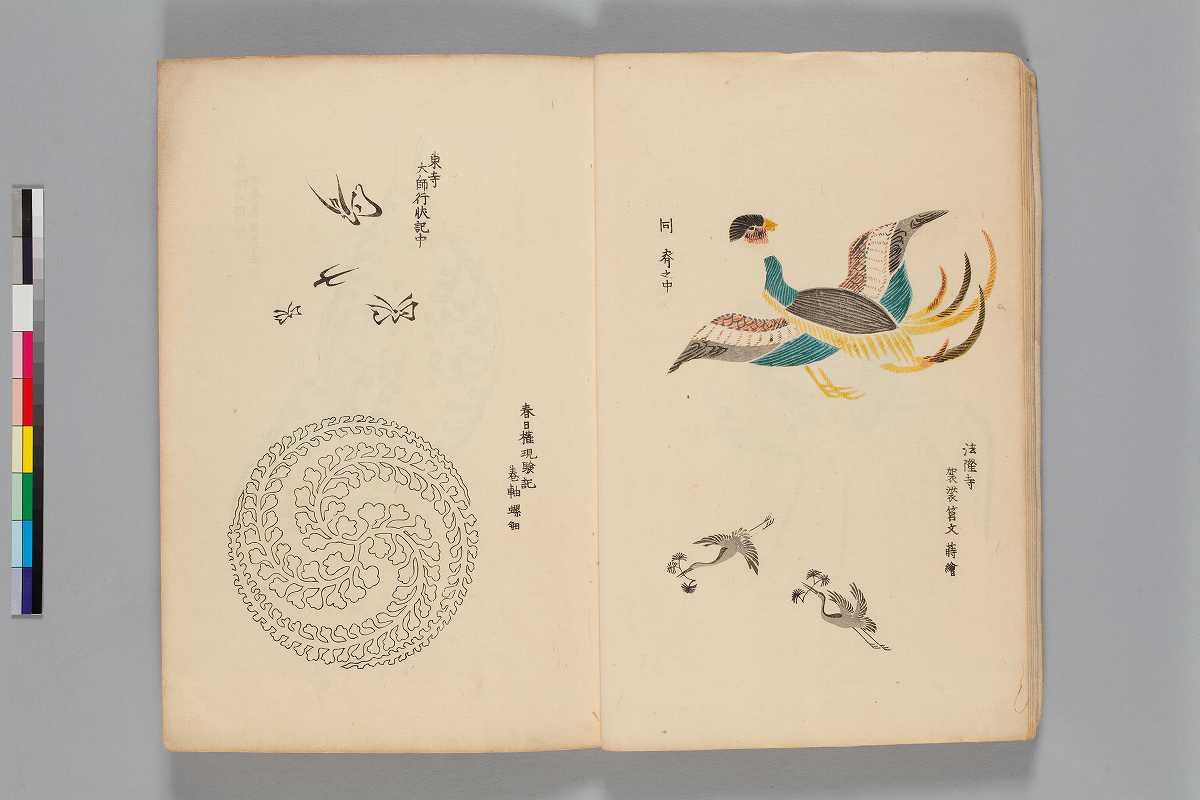 同 脊之中
法隆寺
袈裟筥文 蒔繪
東寺
大師行状記中
春日権現験記
巻軸螺鈿